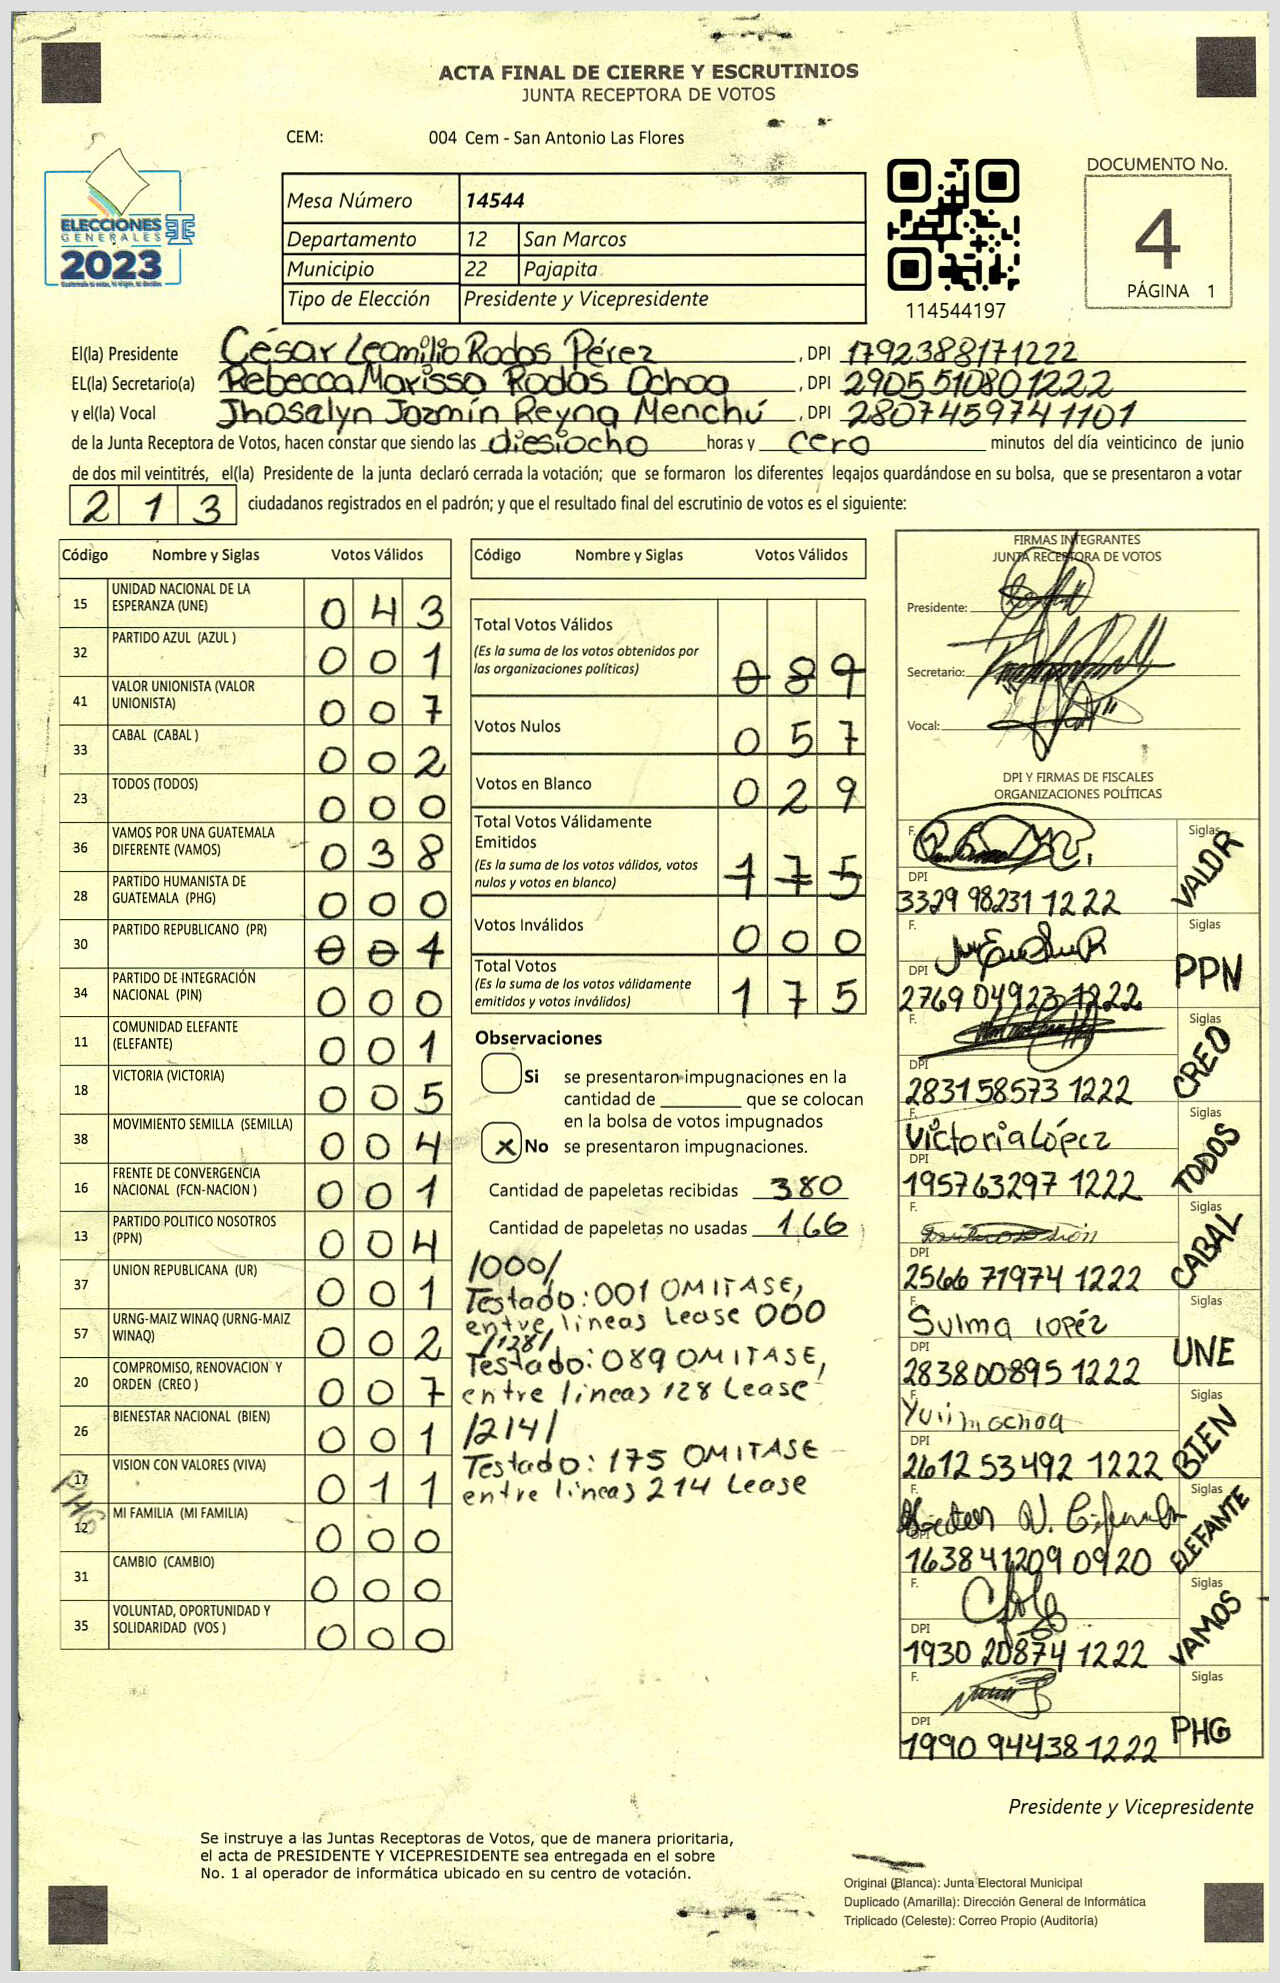 ACTA FINAL DE CIERRE Y ESCRUTINIOS
JUNTA RECEPTORA DE VOTOS
CEM: 004 Cem - San Antonio Las Flores
ELECCIONES
GENERALES
2023
Mesa Número 14544
Departamento 12 San Marcos
Municipio 22 Pajapita
Tipo de Elección Presidente y Vicepresidente
114544197
DOCUMENTO No.
4
PÁGINA 1
El(la) Presidente César Leomilio Rodas Pérez , DPI 1792388171222
EL(la) Secretario(a) Rebecca Marissa Rodas Ochoa , DPI 2905510801222
y el(la) Vocal Jhosalyn Jazmín Reyna Menchú , DPI 2807459741101
de la Junta Receptora de Votos, hacen constar que siendo las diesiocho horas y cero minutos del día veinticinco de junio
de dos mil veintitrés, el(la) Presidente de la junta declaró cerrada la votación; que se formaron los diferentes legajos quardándose en su bolsa, que se presentaron a votar
213 ciudadanos registrados en el padrón; y que el resultado final del escrutinio de votos es el siguiente:
Código Nombre y Siglas Votos Válidos
15 UNIDAD NACIONAL DE LA ESPERANZA (UNE) 043
32 PARTIDO AZUL (AZUL ) 001
41 VALOR UNIONISTA (VALOR UNIONISTA) 007
33 CABAL (CABAL ) 002
23 TODOS (TODOS) 000
36 VAMOS POR UNA GUATEMALA DIFERENTE (VAMOS) 038
28 PARTIDO HUMANISTA DE GUATEMALA (PHG) 000
30 PARTIDO REPUBLICANO (PR) 001
34 PARTIDO DE INTEGRACIÓN NACIONAL (PIN) 000
11 COMUNIDAD ELEFANTE (ELEFANTE) 001
18 VICTORIA (VICTORIA) 005
38 MOVIMIENTO SEMILLA (SEMILLA) 004
16 FRENTE DE CONVERGENCIA NACIONAL (FCN-NACION ) 001
13 PARTIDO POLITICO NOSOTROS (PPN) 004
37 UNION REPUBLICANA (UR) 001
57 URNG-MAIZ WINAQ (URNG-MAIZ WINAQ) 002
20 COMPROMISO, RENOVACION Y ORDEN (CREO ) 007
26 BIENESTAR NACIONAL (BIEN) 001
17 VISION CON VALORES (VIVA) 011
PHG
12 MI FAMILIA (MI FAMILIA) 000
31 CAMBIO (CAMBIO) 000
35 VOLUNTAD, OPORTUNIDAD Y SOLIDARIDAD (VOS ) 000
Código Nombre y Siglas Votos Válidos
Total Votos Válidos
(Es la suma de los votos obtenidos por
las organizaciones políticas) 089
Votos Nulos 057
Votos en Blanco 029
Total Votos Válidamente
Emitidos
(Es la suma de los votos válidos, votos
nulos y votos en blanco) 175
Votos Inválidos 000
Total Votos
(Es la suma de los votos válidamente
emitidos y votos inválidos) 175
Observaciones
Si se presentaron impugnaciones en la
cantidad de ________ que se colocan
en la bolsa de votos impugnados
x No se presentaron impugnaciones.
Cantidad de papeletas recibidas 380
Cantidad de papeletas no usadas 166
/000/
Testado: 001 OMITASE,
entre lineas Lease 000
/128/
Testado: 089 OMITASE,
entre lineas 128 Lease
/214/
Testado: 175 OMITASE
entre lineas 214 Lease
FIRMAS INTEGRANTES
JUNTA RECEPTORA DE VOTOS
Presidente:
Secretario:
Vocal:
DPI Y FIRMAS DE FISCALES
ORGANIZACIONES POLÍTICAS
F. Siglas VALOR
DPI
3329 98231 1222
F. Siglas PPN
DPI
2769 04923 1222
F. Siglas CREO
DPI
2831 58573 1222
F. Victoria López Siglas TODOS
DPI
1957 63297 1222
F. Siglas CABAL
DPI
2566 71974 1222
F. Sulma lopéz Siglas UNE
DPI
2838 00895 1222
F. ochoa Siglas BIEN
DPI
2612 53492 1222
F. Siglas ELEFANTE
DPI
1638 41209 0920
F. Siglas VAMOS
DPI
1930 20874 1222
F. Siglas PHG
DPI
1990 94438 1222
Presidente y Vicepresidente
Se instruye a las Juntas Receptoras de Votos, que de manera prioritaria,
el acta de PRESIDENTE Y VICEPRESIDENTE sea entregada en el sobre
No. 1 al operador de informática ubicado en su centro de votación.
Original (Blanca): Junta Electoral Municipal
Duplicado (Amarilla): Dirección General de Informática
Triplicado (Celeste): Correo Propio (Auditoría)